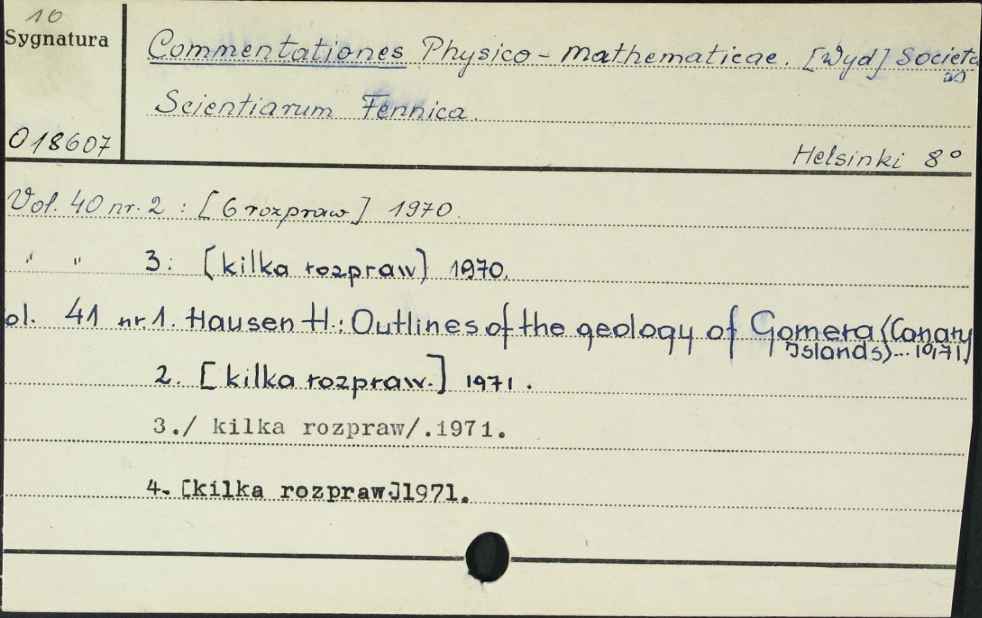 10
Sygnatura
Commentationes Physico-Mathematicae. [Wyd] Societas
Scientiarum Fennica.
018607
Helsinki 8°
Vol. 40 nr. 2 : [6 rozpraw] 1970.
" " 3: [kilka rozpraw] 1970.
ol. 41 nr 1. Hausen H.: Outlines of the geology of Gomera (Canary
Islands)...
2. [kilka rozpraw.] 1971.
3./ kilka rozpraw/.1971.
4. [kilka rozpraw]1971.